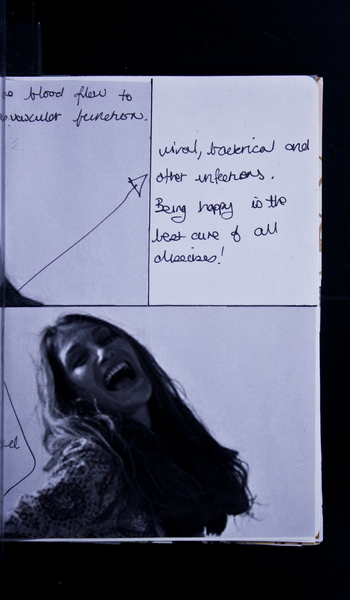 blood flow to
vascular function.
viral, bacterical and
other infections.
Being happy is the
best cure of all
diseases!